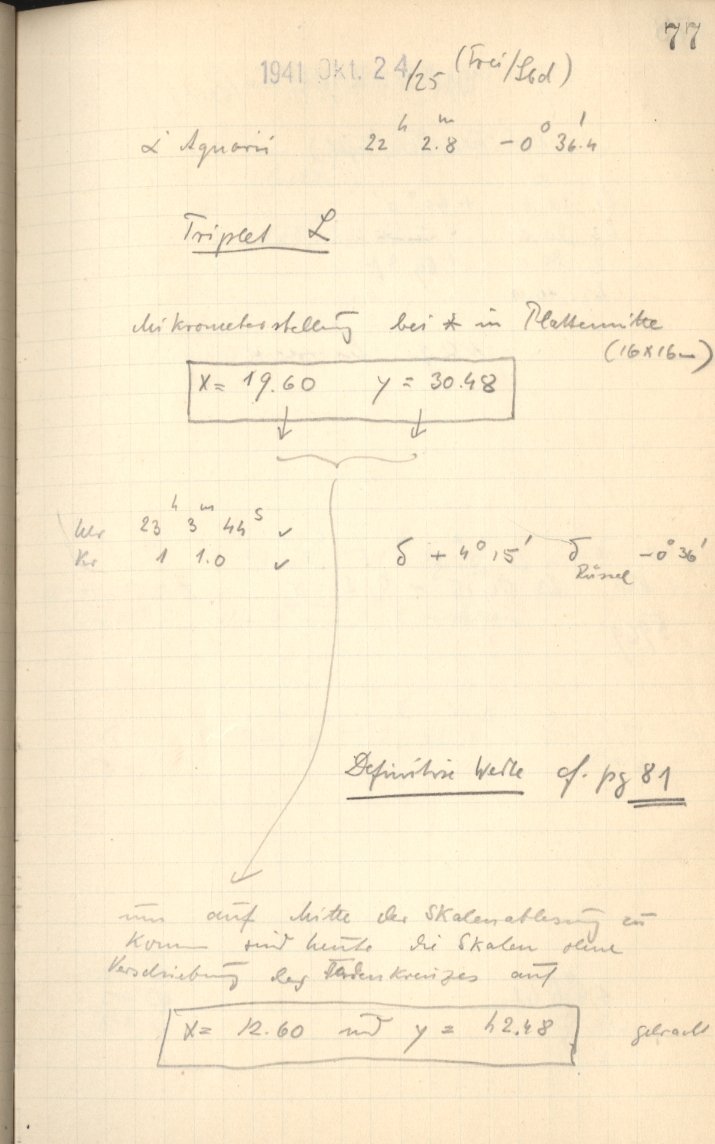 77
1941 Okt. 24/25 (Frei/Sbd)
α Aquarii 22h 2m.8 -0° 36'.4
Triplet L
Mikrometerstellung bei * in Plattenmitte
(16x16cm)
x = 19.60 y = 30.48
23h 3m 44s ✓
1 1.0 ✓ δ + 4° 15' δ -0° 36'
Definitive Werte cf. pg 81
um auf Mitte der Skalenablesung zu
komm sind heute die Skalen ohne
Verschiebung des Fadenkreuzes auf
x = 12.60 und y = 42.48 gebracht